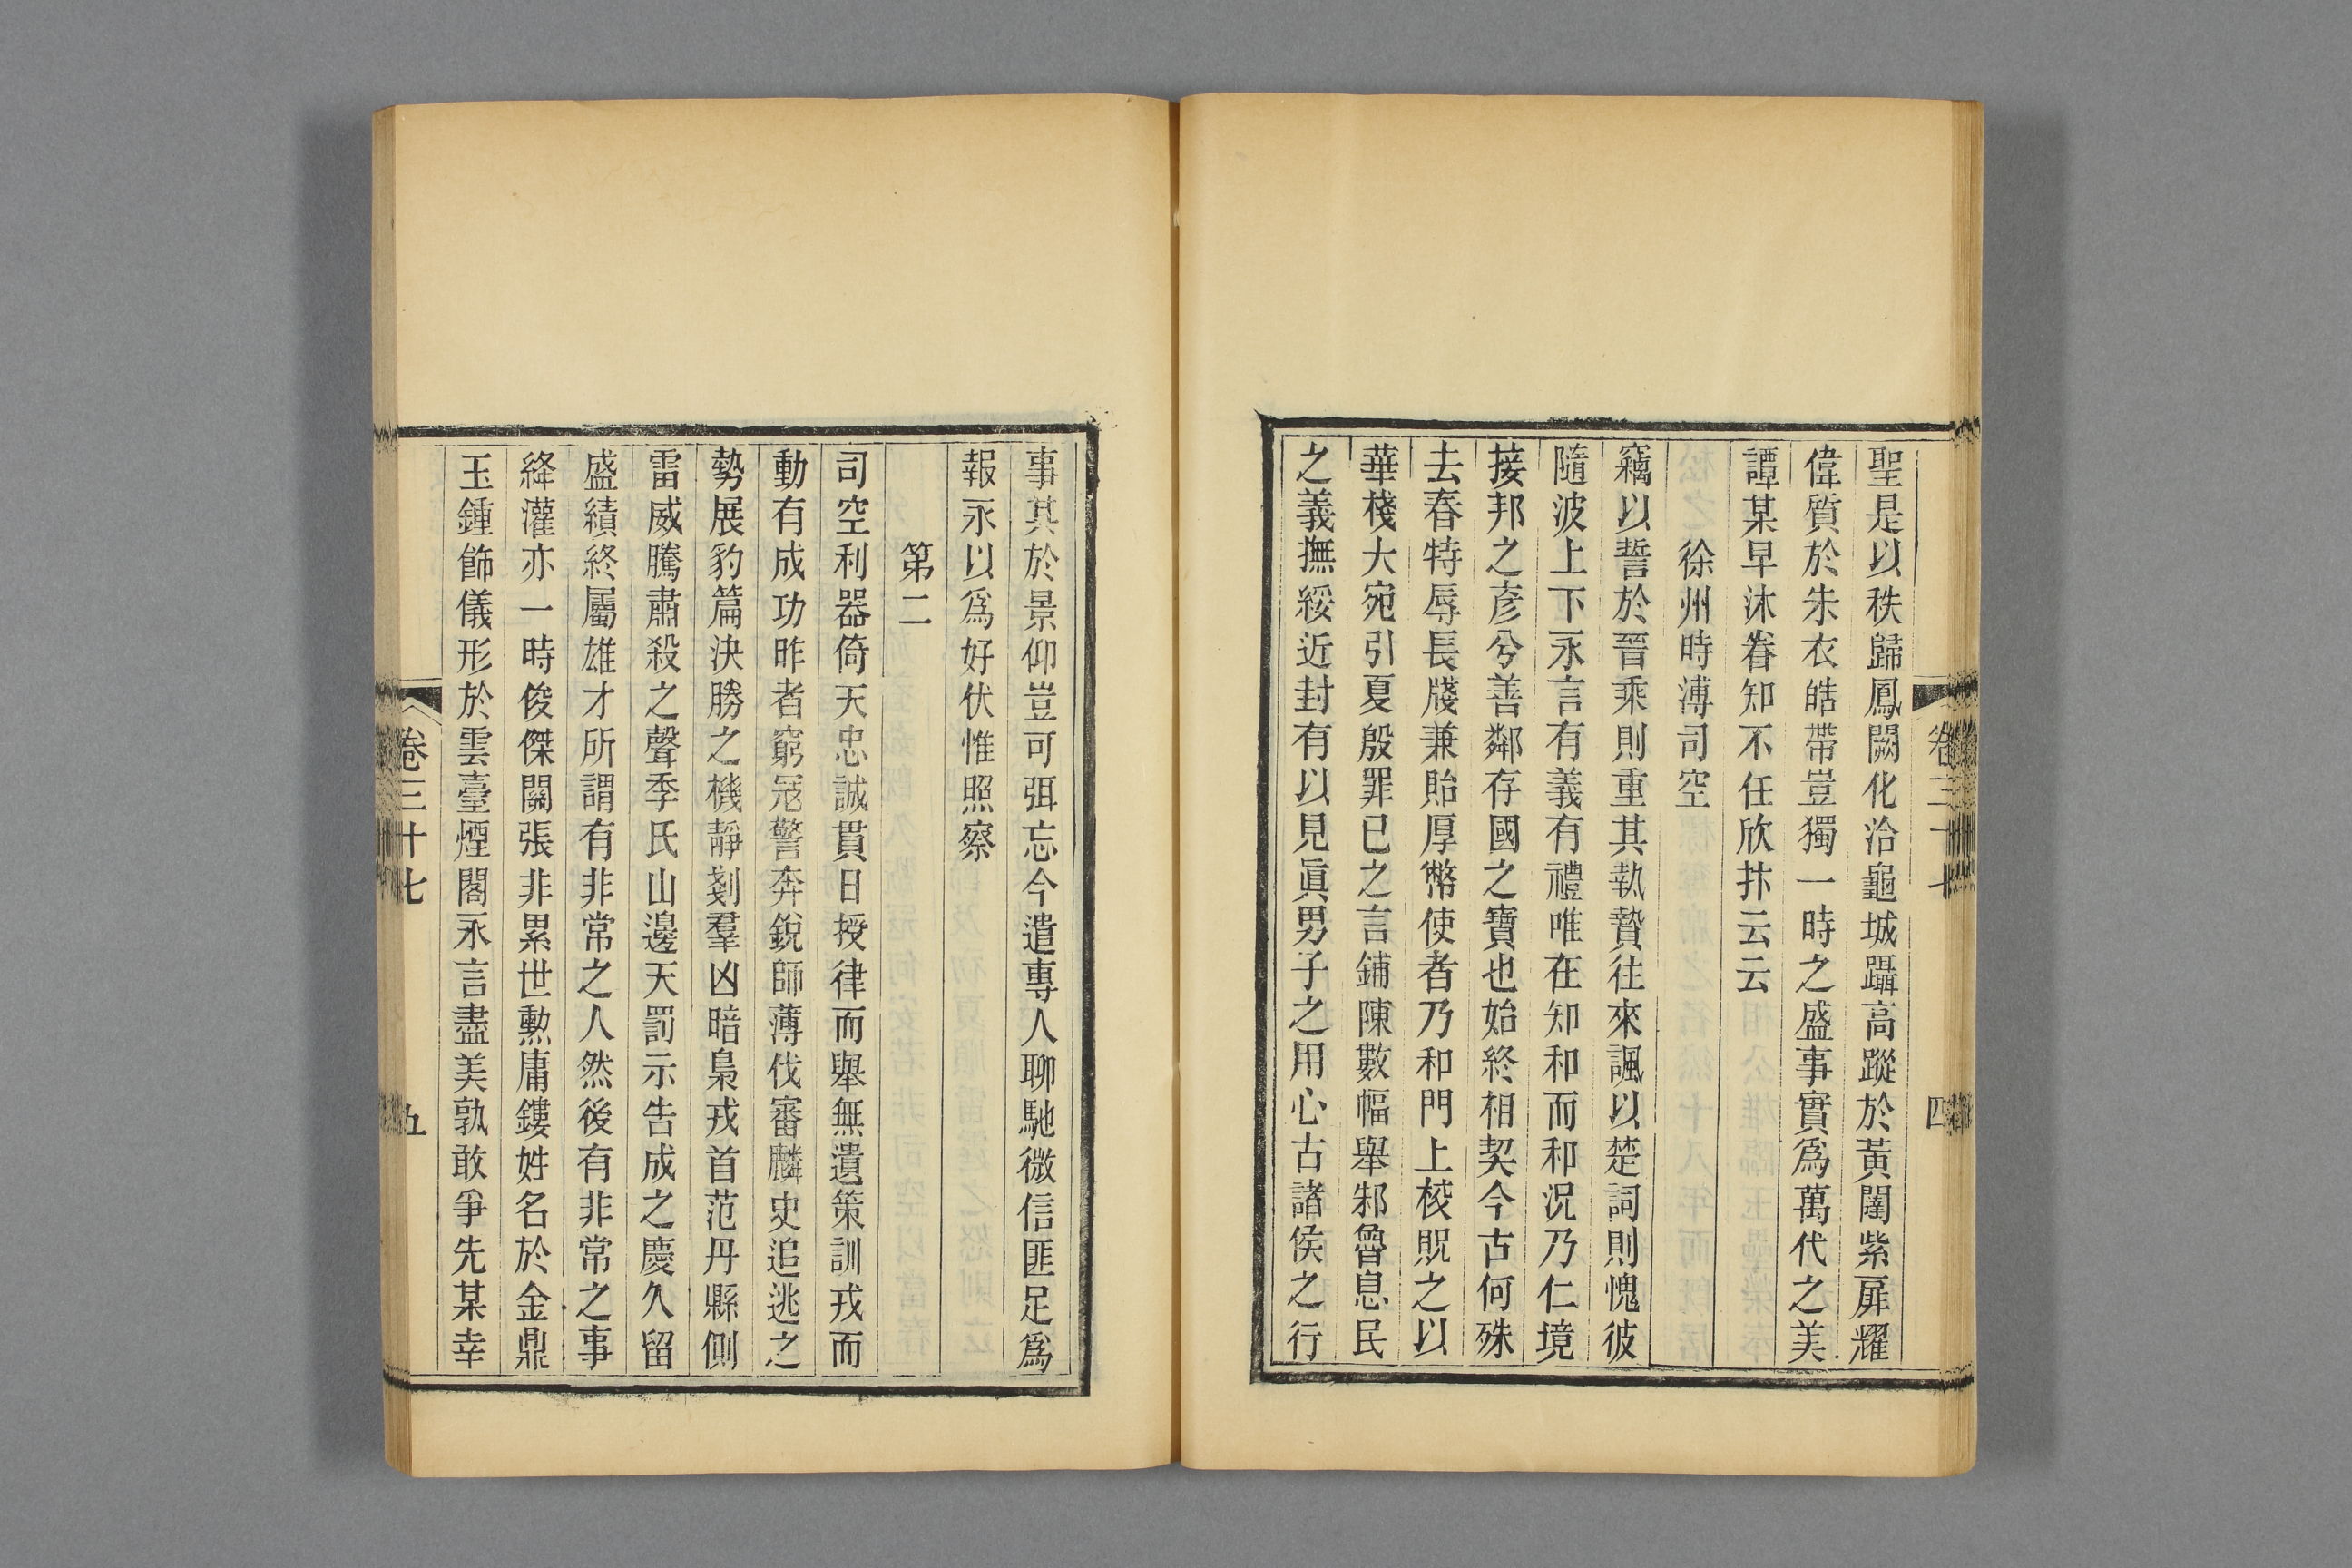 聖是以秩歸鳳闕化洽龜城躡高蹤於黃闥紫扉耀
偉質於朱衣皓帶豈獨一時之盛事實爲萬代之美
譚某早沐眷知不任欣抃云云
徐州時溥司空
竊以誓於晉乘則重其執贄往來諷以楚詞則愧彼
隨波上下永言有義有禮唯在知和而和況乃仁境
接邦之彥兮善鄰存國之寶也始終相契今古何殊
去春特辱長牋兼貽厚幣使者乃和門上棱貺之以
華棧大宛引夏殷罪已之言鋪陳數幅舉邾魯息民
之義撫綏近封有以見眞男子之用心古諸侯之行
卷三十七
四
事其於景仰豈可弭忘今遣專人聊馳微信匪足爲
報永以爲好伏惟照察
第二
司空利器倚天忠誠貫日授律而舉無遺策訓戎而
動有成功昨者窮寇警奔銳師薄伐審麟史追逃之
勢展豹篇決勝之機靜剗羣凶暗梟戎首范丹縣側
雷威騰肅殺之聲季氏山邊天罰示告成之慶久留
盛績終屬雄才所謂有非常之人然後有非常之事
絳灌亦一時俊傑關張非累世勳庸鏤姓名於金鼎
玉鍾飾儀形於雲臺煙閣永言盡美孰敢爭先某幸
卷三十七
五